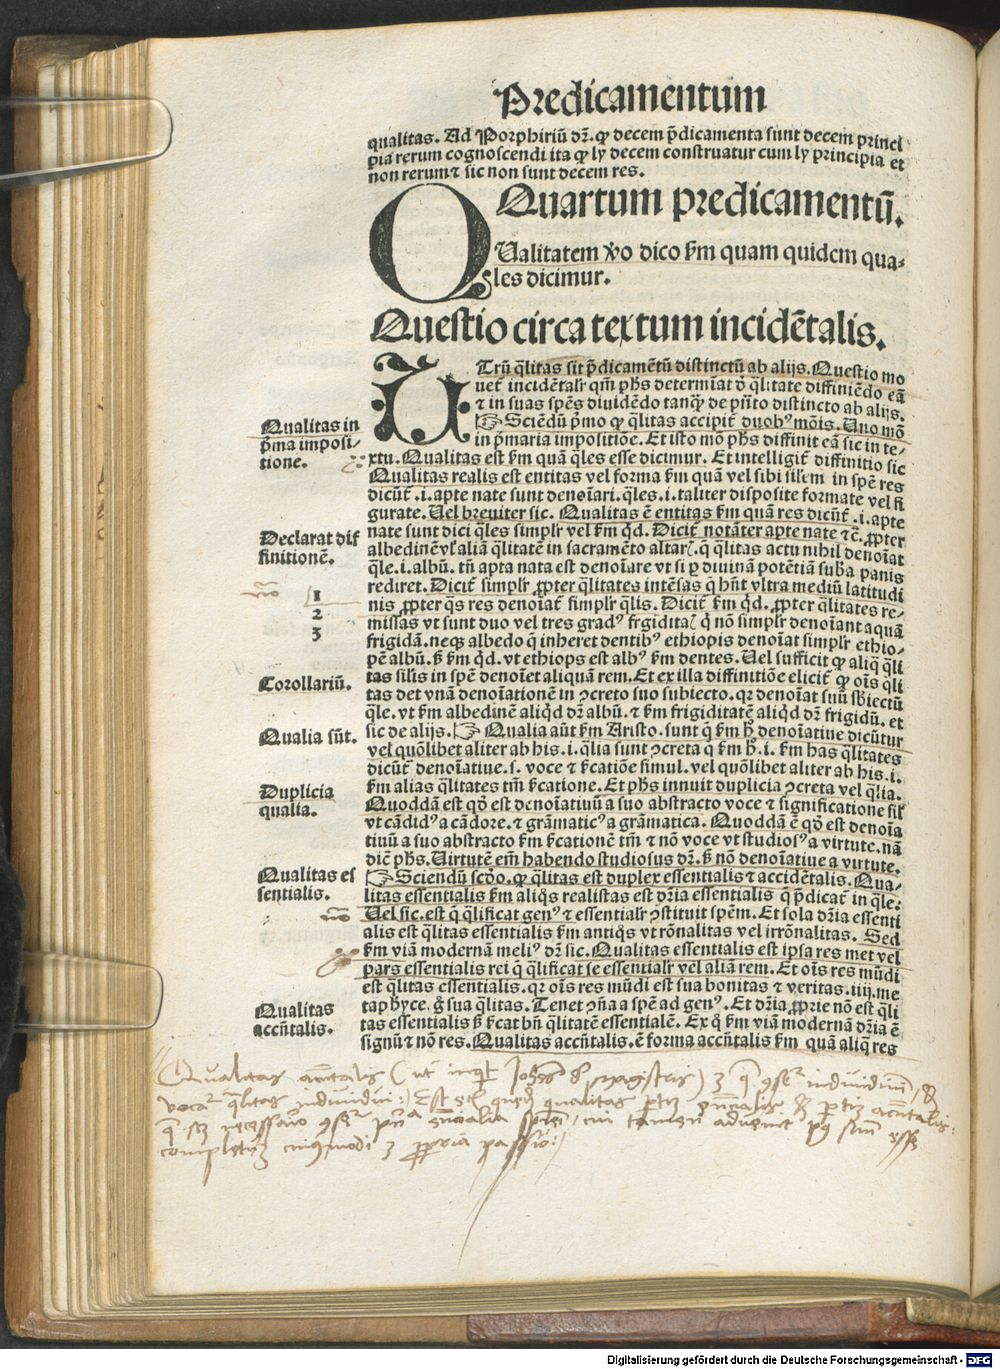 Predicamentum
qualitas. Ad Porphiriū dꝛ. ꝙ decem p̄dicamenta sunt decem princi
pia rerum cognoscendi ita ꝙ ly decem construatur cum ly principia et
non rerum ⁊ sic non sunt decem res.
Quartum predicamentū.
QUalitatem ꝟo dico ẜm quam quidem qua-
les dicimur.
Questio circa textum incidētalis.
UTrū q̄litas sit p̄dicamētū distinctū ab alijs. Questio mo
uet᷑ incidētalr̄ qm̄ ph̄s determīat ď q̄litate diffiniēdo eā
⁊ in suas sp̄es diuidēdo tanq̄ de p̄nto distincto ab alijs.
☞ Sciendū p̄mo ꝙ q̄litas accipit᷑ duobꝰ mōis. Uno mō
in p̄maria impositiōe. Et isto mō ph̄s diffinit eā sic in te-
xtu. Qualitas est ẜm quā q̄les esse dicimur. Et intelligit᷑ diffinitio sic
Qualitas realis est entitas vel forma ẜm quā vel sibi silem in sp̄e res
dicūt᷑ .i. apte nate sunt denoīari. q̄les .i. taliter disposite formate vel fi
gurate. Uel breuiter sic. Qualitas ē entitas ẜm quā res dicūt᷑ .i. apte
nate sunt dici q̄les simplr̄ vel ẜm qd̄. Dicit᷑ notāter apte nate ⁊c̄. ꝓpter
albedinē vl̓ aliā q̄litatē in sacramēto altar. q̄ q̄litas actu nihil denoīat
q̄le .i. albū. tn̄ apta nata est denoīare vt si ꝑ diuinā potētiā suba panis
rediret. Dicit᷑ simplr̄ ꝓpter q̄litates intēsas q̄ hn̄t vltra mediū latitudi
nis ꝓpter q̄s res denoīat᷑ simplr̄ q̄lis. Dicit᷑ ẜm qd̄. ꝓpter q̄litates re-
missas vt sunt duo vel tres gradꝰ frigidita. q̄ nō simplr̄ denoīant aquā
frigidā. neqꝫ albedo q̄ inheret dentibꝰ ethiopis denoīat simplr̄ ethio-
pē albū. ẞ ẜm qd̄. vt ethiops est albꝰ ẜm dentes. Uel sufficit ꝙ aliq̄ q̄li
tas silis in sp̄e denoīet aliquam rem. Et ex illa diffinitiōe elicit᷑ ꝙ oīs q̄li
tas det vnā denoīationē in ꝯcreto suo subiecto. qꝛ denoīat suū sb̄iectū
q̄le. vt ẜm albedinē aliqd̄ dꝛ albū. ⁊ ẜm frigiditatē aliqd̄ dꝛ frigidū. et
sic de alijs. ☞ Qualia aūt ẜm Aristo. sunt q̄ ẜm h̄ denoīatiue dicūtur
vel quōlibet aliter ab his .i. q̄lia sunt ꝯcreta q̄ ẜm h̄ .i. ẜm has q̄litates
dicūt᷑ denoīatiue .s. voce ⁊ ẜcatiōe simul. vel quōlibet aliter ab his .i.
ẜm alias q̄litates tm̄ ẜcatione. Et ph̄s innuit duplicia ꝯcreta vel q̄lia.
Quoddā est qō est denoīatiuū a suo abstracto voce ⁊ significatione sil̓
vt cādidꝰ a cādore. ⁊ grāmaticꝰ a grāmatica. Quoddā ē qō est denoīa
tiuū a suo abstracto ẜm ẜcationē tm̄ ⁊ nō voce vt studiosꝰ a virtute. nā
dic̄ ph̄s. Uirtutē em̄ habendo studiosus dꝛ. ẞ nō denoīatiue a virtute.
☞ Sciendū scd̄o. ꝙ q̄litas est duplex essentialis ⁊ accidētalis. Qua-
litas essentialis ẜm aliq̄s realistas est dr̄ia essentialis q̄ p̄dicat᷑ in q̄le.
Uel sic. est q̄ q̄lificat genꝰ ⁊ essentialr̄ ꝯstituit sp̄em. Et sola dr̄ia essenti
alis est q̄litas essentialis ẜm antiq̄s vt rōnalitas vel irrōnalitas. Sed
ẜm viā modernā meliꝰ dꝛ sic. Qualitas essentialis est ipsa res met vel
pars essentialis rei q̄ q̄lificat se essentialr̄ vel aliā rem. Et oīs res mūdi
est q̄litas essentialis. qꝛ oīs res mūdi est sua bonitas ⁊ veritas .iiij. me
taphyce. ḡ sua q̄litas. Tenet ꝯn̄a a sp̄e ad genꝰ. Et dr̄ia ꝓprie nō est q̄li
tas essentialis ẞ ẜcat bn̄ q̄litatē essentialē. Ex q̊ ẜm viā modernā dr̄ia ē
signū ⁊ nō res. Qualitas accn̄talis. ē forma accn̄talis ẜm quā aliq̄ res
Qualitas in
p̄ma imposi-
tione.
Declarat dif
finitionē.
1
2
3
Corollariū.
Qualia sūt.
Duplicia
qualia.
Qualitas es
sentialis.
Qualitas
accn̄talis.
Digitalisierung gefördert durch die Deutsche Forschungsgemeinschaft - DFG